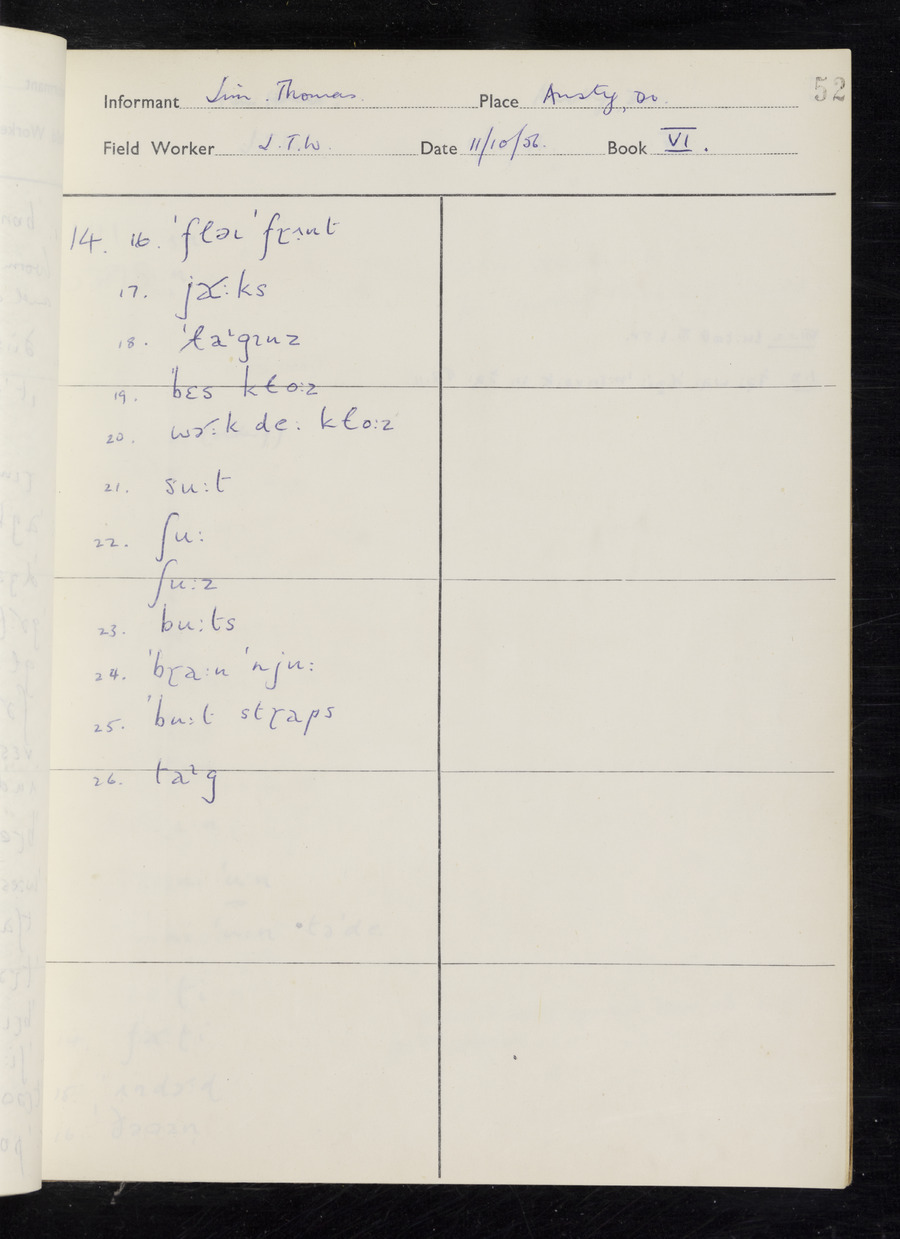 52
Informant Jim Thomas. Place Ansty, Do.
Field Worker J.T.W. Date 11/10/56. Book VI.
14. 16. ˈfɫəɩ ˈfɽʌnt
17. jɚ:ks
18. ˈɫaˡgɪnz
19. ˈbɛs kɫo:z
20. wɚ:k de: kɫo:z
21. su:t
22. ʃu:
ʃu:z
23. bu:ts
24. ˈbɽa:n ˈnju:
25. ˈbu:t stɽaps
26. taˡg